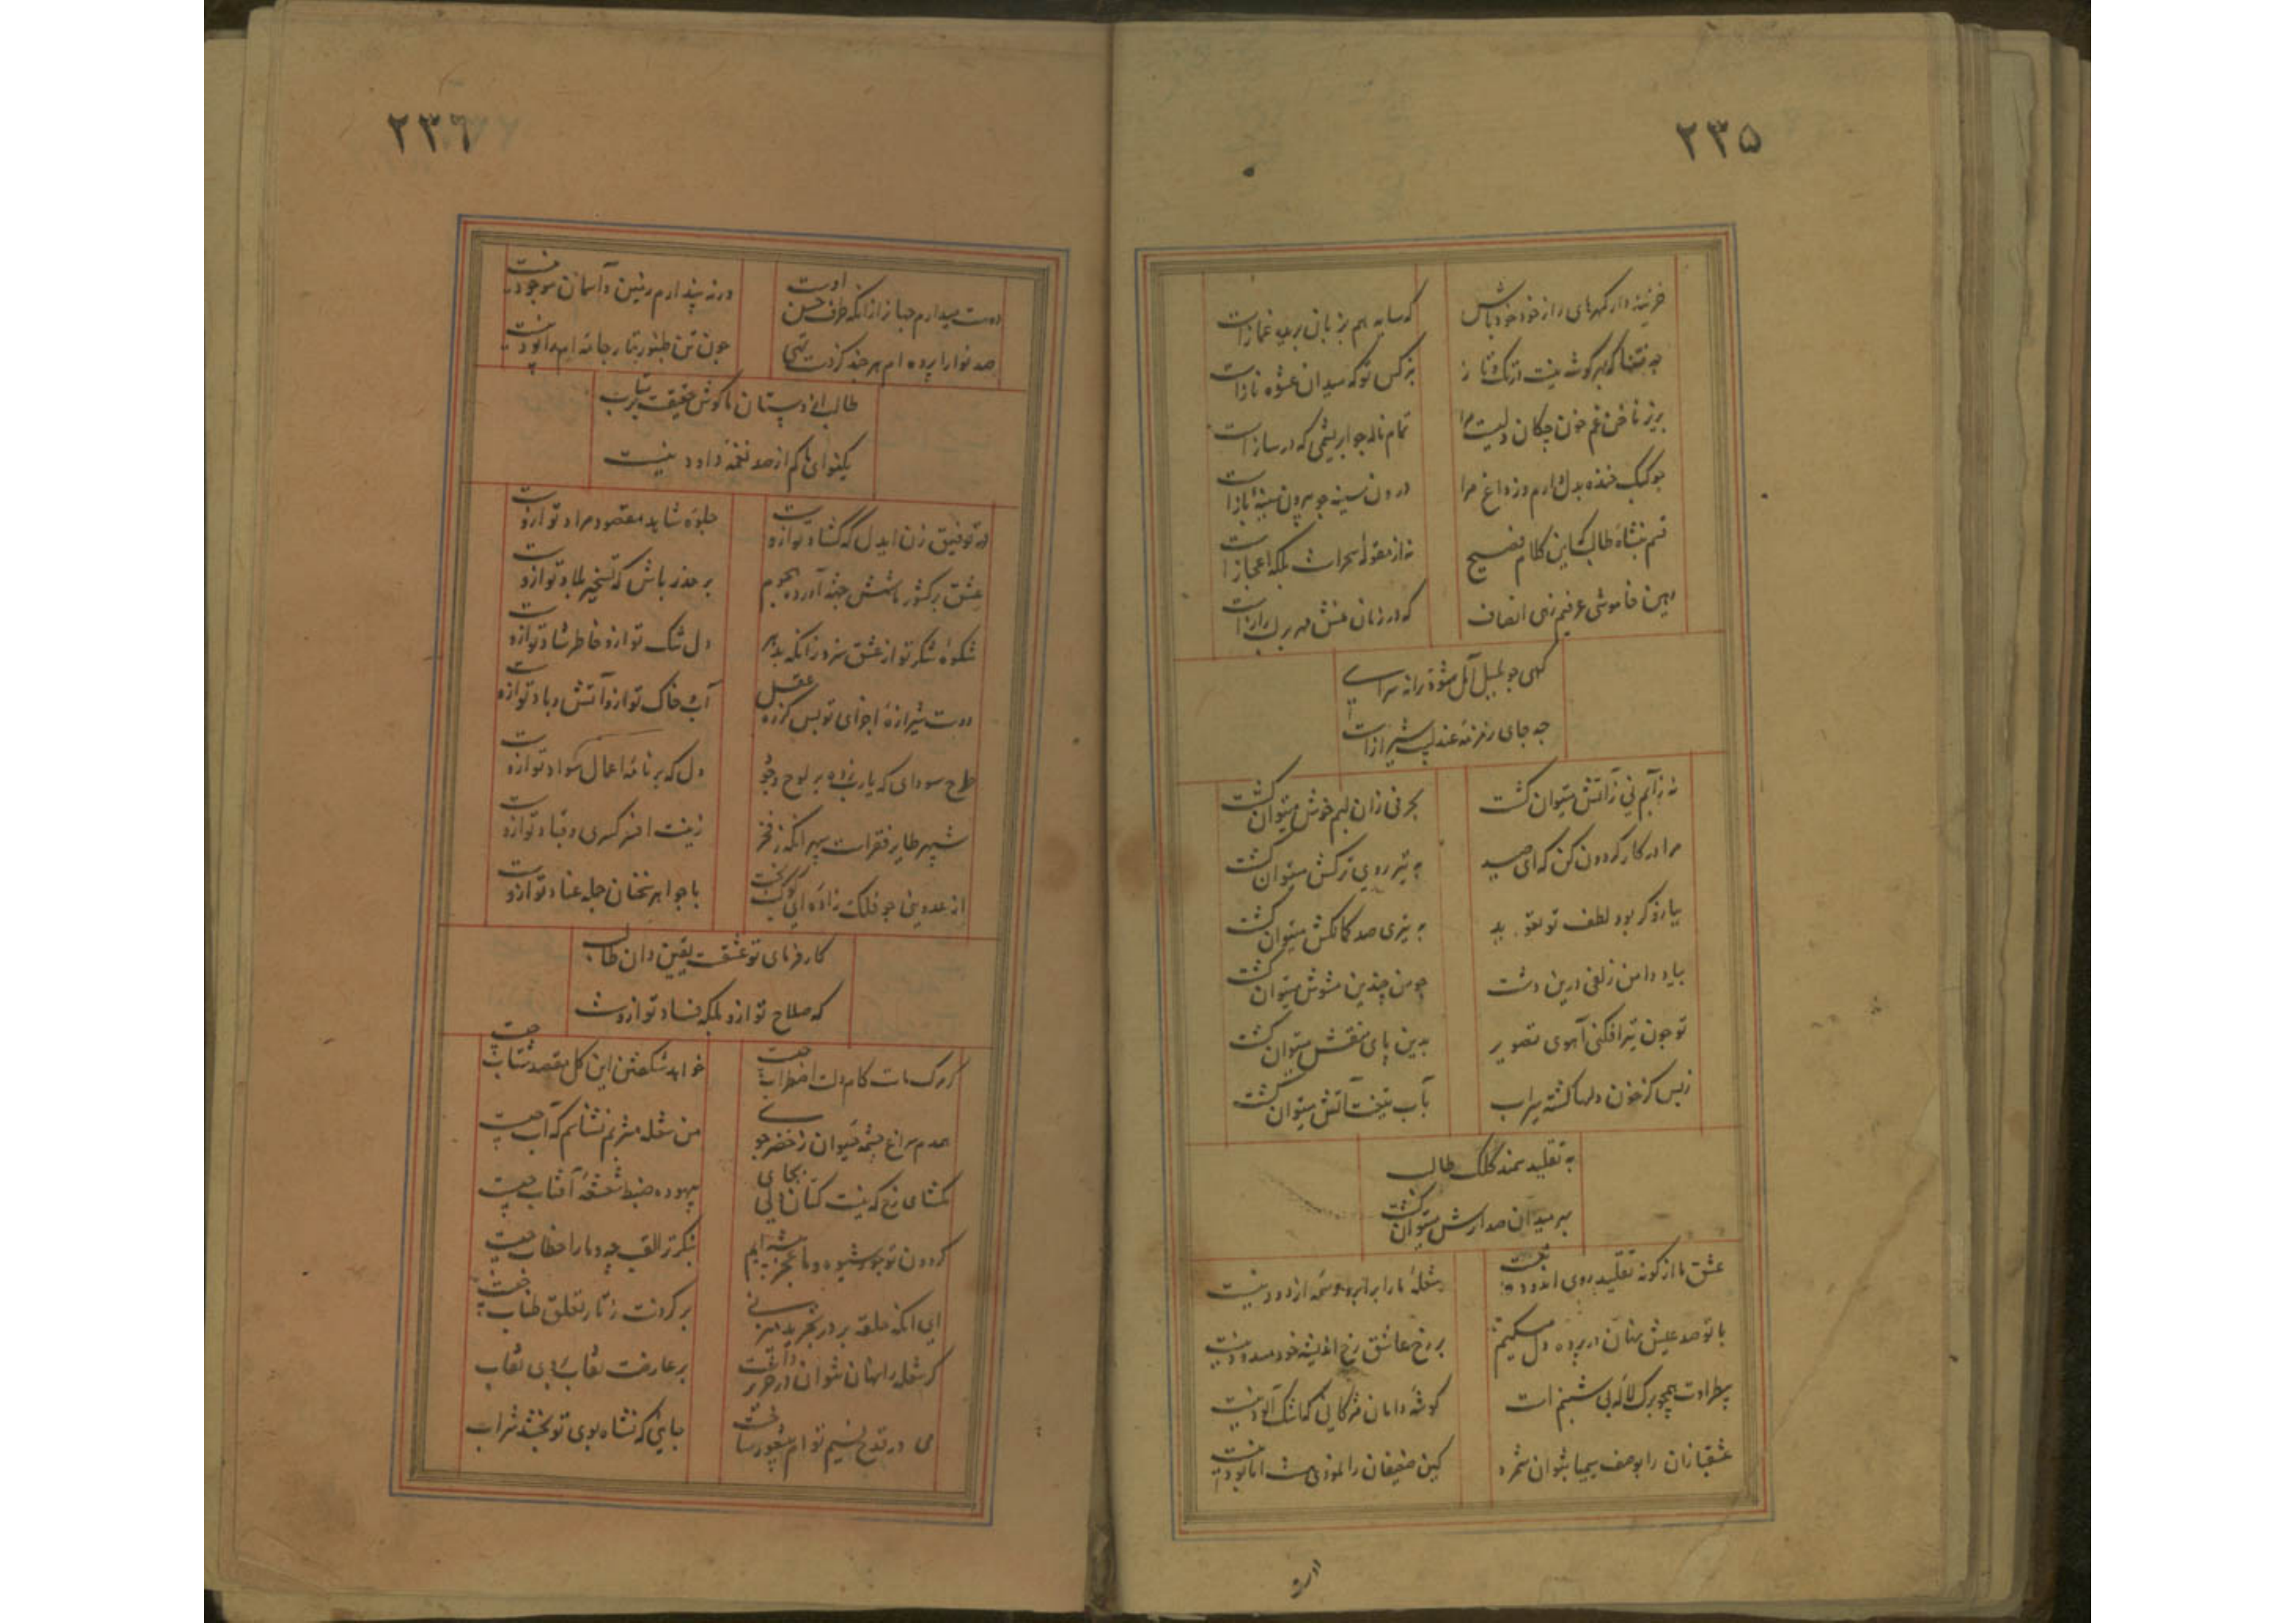 ۲۳۵
خزینه دار گهرهای راز خود خود باش
که سایه هم بزبان بریده غمازست
چه فتنها که بهر گوشه نیست در تک و تاز
نرگس تو که میدان عشوه و نازست
بریز ناخن غم خون چکان دلیست مرا
تمام ناله چو ابریشمی که در سازست
چو کبک خنده بدل دارم و ز داغ مرا
درون سینه چو بیرون سینهٔ بازست
قسم بنشاه طالب که این کلام فصیح
نه از مقولهٔ سحرست بلکه اعجازست
همین خاموشی عرفیم زهی انصاف
که در زمان منش مهر بر لب رازست
گهی چو بلبل آمل نشد ترانه سرای
چه جای زمزمه عندلیب شیرازست
نه زآبم نی زآتش میتوان کشت
بحرفی زان لبم خوش میتوان کشت
مرا در کار گردون کن که ای صید
به تیر روی ترکش میتوان کشت
بیارد گر بود لطف تو تعوید
به تیری صد کمانکش میتوان کشت
بیاد دامن زلفی درین دشت
چو من چندین مشوش میتوان کشت
تو چون تیر افکنی آهوی تصویر
بدین پای منقش میتوان کشت
زبس کز خون دلها گشته سیراب
بآب تیغت آتش میتوان کشت
به تقلید سمند کلک طالب
بهر میدان صد ارش میتوان کشت
عشق ما از گونه تقلید روی اندوده نیست
شعلهٔ ما را بر ابرو وسمه از دود نیست
با تو صد عیش نهان در پرده دل میکنیم
بر رخ عاشق رخ اندیشه خود مسدود نیست
بیطراوت همچو برگ لالهٔ بی شبنم است
گوشهٔ دامان مژگانی کماشک آلود نیست
عشقبازان را بوصف بیمیا نتوان شمرد
کین ضعیفان را نمودی هست اما بود نیست
۲۳۶
دست میدارم حیا زو زانکه طرف حسن اوست
ورنه پندارم زمین و آسمان موجود نیست
صد نوا را پرده ام هر چند کز دست تهی
چون تن طنبور تار جامه ام را پود نیست
طالب از دوستان ما گوش حقیقت بر متاب
یکنوای ما کم از صد نغمهٔ داود نیست
در توفیق زن ایدل که گشاد تو ازوست
جلوهٔ شاید مقصود مراد تو ازوست
عشق بر کشور دانش حبشه آورده هجوم
بر حذر باش که تسخیر بلاد تو ازوست
شکوهٔ شکر تو از عشق سزد زانکه بدهر
دل تنگ تو ازو خاطر شاد تو ازوست
دوست شیرازهٔ اجزای تو بس کز ره عقل
آب و خاک تو ازو آتش و باد تو ازوست
طرح سودای که یارب زده بر لوح وجود
دل که بر نامهٔ اعمال سواد تو ازوست
شهپر طایر فقرست سپهر آنکه ز فخر
زینت افسر کسری و قباد تو ازوست
از عدو بینی چو فلک زادهٔ ای کوکب بخت
با جواهر سخنان جمله عناد تو ازوست
کار فرمای تو عشقست یقین دان طالب
که صلاح تو ازو بلکه فساد تو ازوست
گر مرگ ماست کام دلت اضطراب چیست
خواهد شکفتن این گل مقصد شتاب چیست
همدم سراغ چشمه حیوان ز خضر جوی
من شعله مشربم نشناسم که آب چیست
بگشای رخ که نیست کتان تابی بجای
بیهوده ضبط شعشعهٔ آفتاب چیست
گردون تو جور شیوه و ما عجز پیشه ایم
بنگر ترا لقب چه و ما را خطاب چیست
ای آنکه حلقه بر در تجرید میزنی
بر گردنت ز تار تعلق طناب چیست
گر شعله را نهان نتوان در حریر داشت
بر عارضت نقاب و بی نقاب
می در قدح نسیم توام بیشعور ساخت
جایی که نشاه بوی تو بخشد شراب